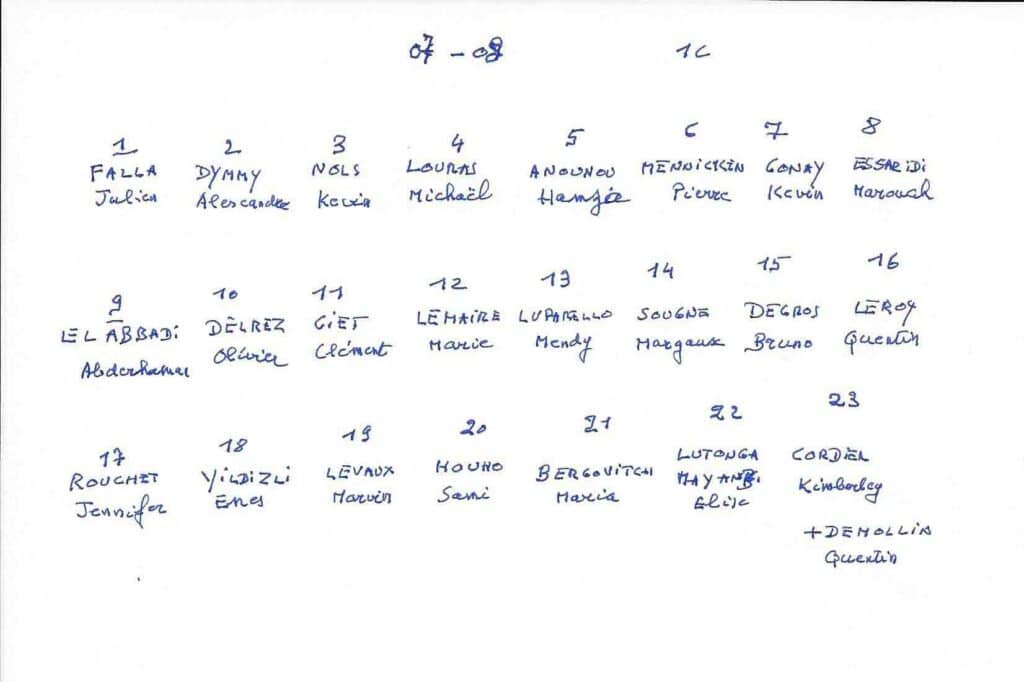 07 - 08 1C
1 2 3 4 5 6 7 8
FALLA DYMMY NOLS LOURAS ANOUNOU MENNICKEN GONAY ESSARIDI
Julien Alexandre Kevin Michaël Hamza Pierre Kevin Marouah
9 10 11 12 13 14 15 16
EL ABBADI DELREZ GIET LEMAIRE LUPARELLO SOUGNE DEGROS LEROY
Olivier Clément Marie Mendy Margaux Bruno Quentin
17 18 19 20 21 22 23
ROUCHET YILDIZLI LEVAUX HOUHO BERGOVITCH LUTONGA CORDIEL
Jennifer Enes Marvin Sami Maria MAYAMBI Kimberley
Elise
+DEMOLLIN
Quentin